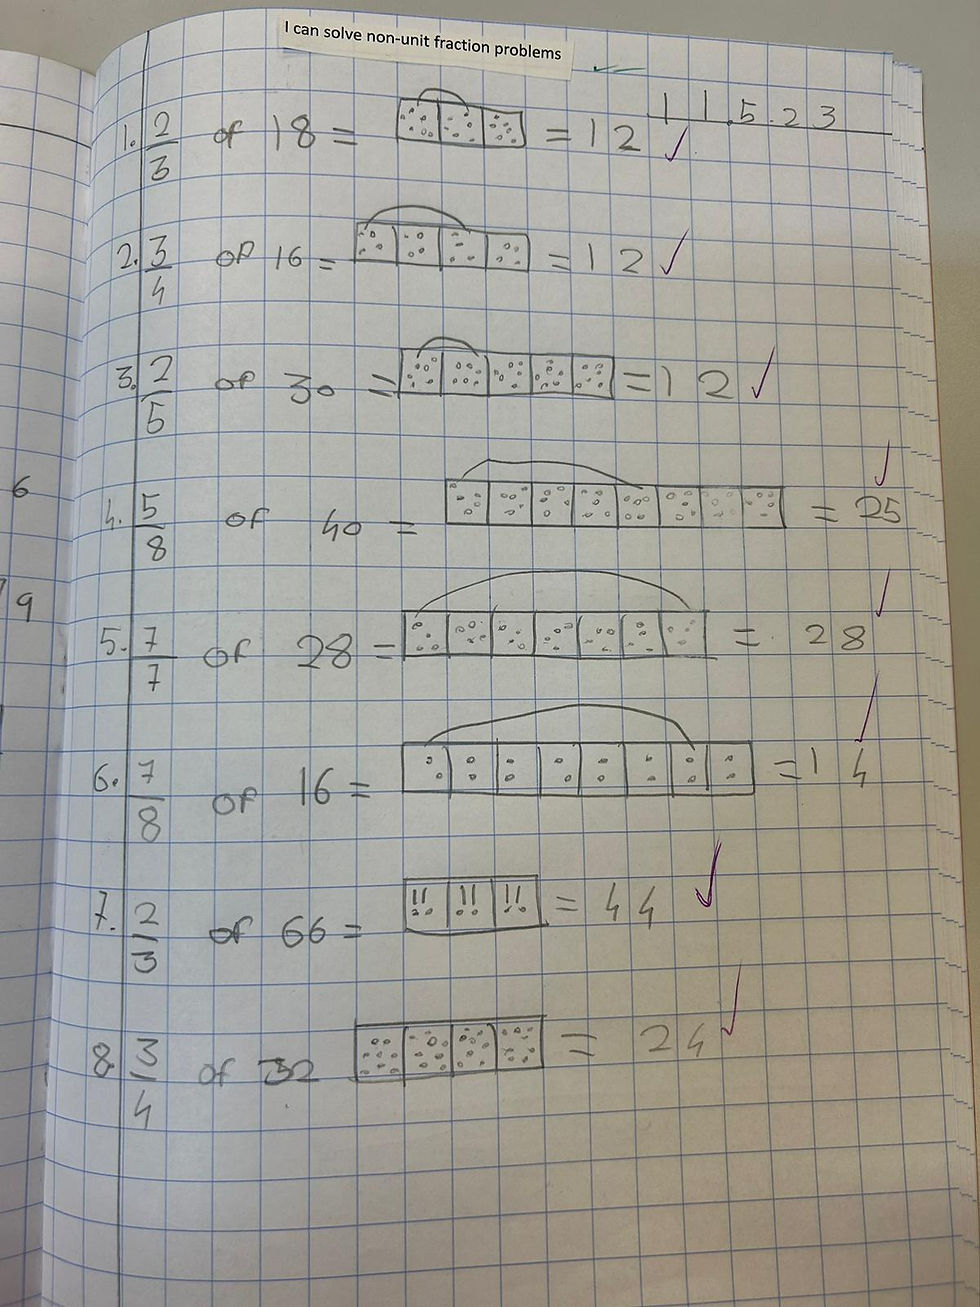 I can solve non-unit fraction problems
11.5.23
1. 2/3 of 18 = = 12
2. 3/4 of 16 = = 12
3. 2/5 of 30 = = 12
4. 5/8 of 40 = = 25
5. 7/7 of 28 = = 28
6. 7/8 of 16 = = 14
7. 2/3 of 66 = = 44
8. 3/4 of 32 = 24
6
9